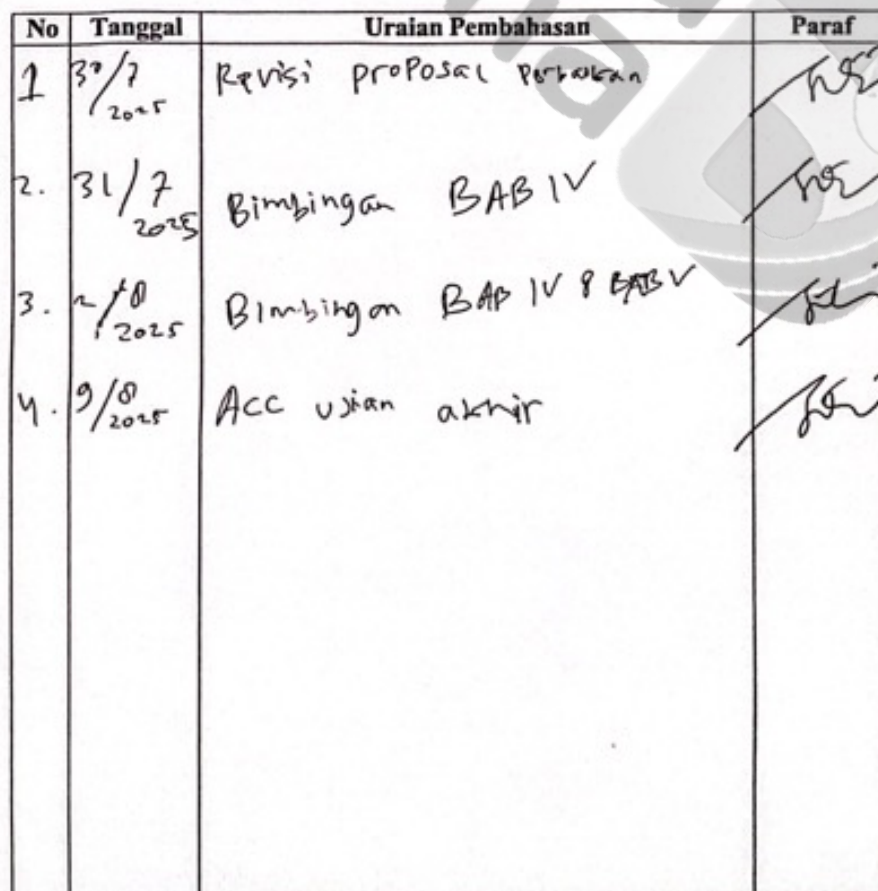 No Tanggal Uraian Pembahasan Paraf
1 30/7 2025 Revisi proposal perbaikan
2. 31/7 2025 Bimbingan BAB IV
3. 2/8 2025 Bimbingan BAB IV & BAB V
4. 9/8 2025 Acc ujian akhir